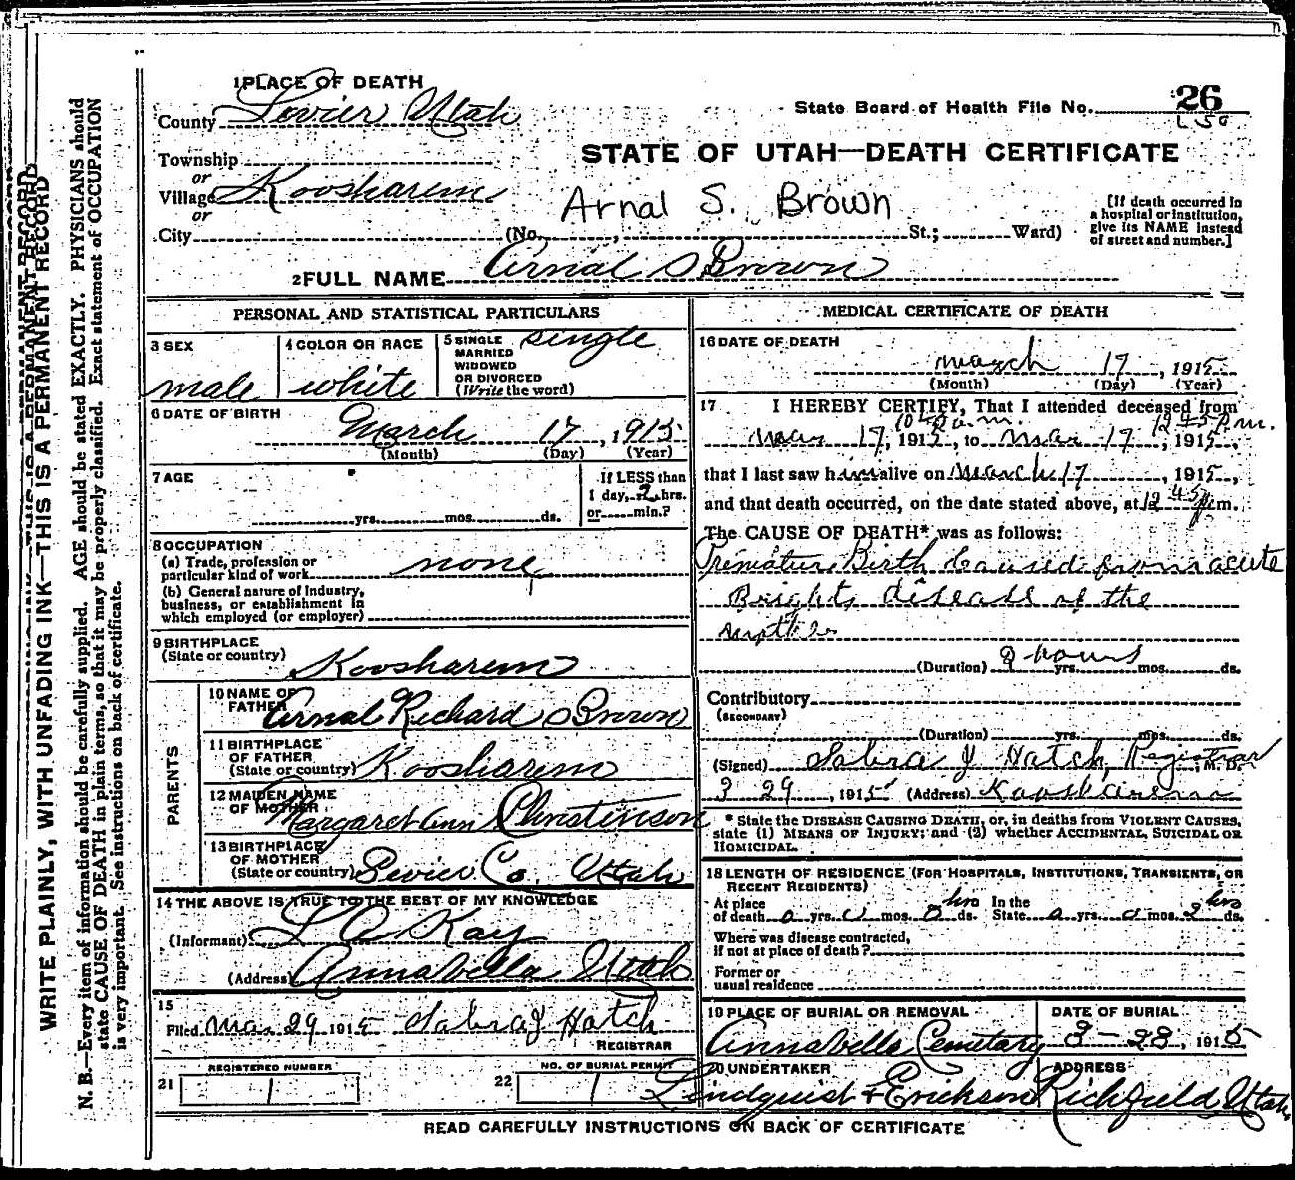 1 PLACE OF DEATH
County Sevier Utah
State Board of Health File No. 26
Township
or
Village Koosharem
or
City
STATE OF UTAH—DEATH CERTIFICATE
Arnal S. Brown
(No. , St.; Ward)
[If death occurred in
a hospital or institution,
give its NAME instead
of street and number.]
2 FULL NAME Arnal S Brown
PERSONAL AND STATISTICAL PARTICULARS
3 SEX
male
4 COLOR OR RACE
white
5 SINGLE
MARRIED
WIDOWED
OR DIVORCED
(Write the word)
single
6 DATE OF BIRTH
March 17, 1915
(Month) (Day) (Year)
7 AGE
yrs. mos. ds.
If LESS than
1 day, 2 hrs.
or min.?
8 OCCUPATION
(a) Trade, profession or
particular kind of work none
(b) General nature of industry,
business, or establishment in
which employed (or employer)
9 BIRTHPLACE
(State or country) Koosharem
PARENTS
10 NAME OF
FATHER Arnal Richard Brown
11 BIRTHPLACE
OF FATHER
(State or country) Koosharem
12 MAIDEN NAME
OF MOTHER Margaret Ann Christinson
13 BIRTHPLACE
OF MOTHER
(State or country) Sevier Co. Utah
14 THE ABOVE IS TRUE TO THE BEST OF MY KNOWLEDGE
(Informant) Kay
(Address) Annabella Utah
15
Filed Mar 29 1915 Sabra J Hatch
REGISTRAR
REGISTERED NUMBER
21 1
NO. OF BURIAL PERMIT
22 1
MEDICAL CERTIFICATE OF DEATH
16 DATE OF DEATH
march 17, 1915
(Month) (Day) (Year)
17 I HEREBY CERTIFY, That I attended deceased from
a.m. 12 45 p.m.
mar 17, 1915, to mar 17, 1915,
that I last saw him alive on March 17, 1915,
and that death occurred, on the date stated above, at 12 45 p.m.
The CAUSE OF DEATH* was as follows:
Premature Birth Caused from acute
Brights disease of the
mother
(Duration) 2 hours yrs. mos. ds.
Contributory
(SECONDARY)
(Duration) yrs. mos. ds.
(Signed) Sabra J Hatch, Registrar, M. D.
3 29, 1915 (Address) Koosharem
* State the DISEASE CAUSING DEATH, or, in deaths from VIOLENT CAUSES,
state (1) MEANS OF INJURY; and (2) whether ACCIDENTAL, SUICIDAL OR
HOMICIDAL.
18 LENGTH OF RESIDENCE (FOR HOSPITALS, INSTITUTIONS, TRANSIENTS, OR
RECENT RESIDENTS)
At place hrs In the hrs
of death 0 yrs. 0 mos. ds. State 0 yrs. 0 mos. 2 ds.
Where was disease contracted,
if not at place of death?
Former or
usual residence
19 PLACE OF BURIAL OR REMOVAL
Annabella Cemetary
DATE OF BURIAL
3-28, 1915
20 UNDERTAKER
Lindquist & Erickson
ADDRESS
Richfield, Utah
READ CAREFULLY INSTRUCTIONS ON BACK OF CERTIFICATE
WRITE PLAINLY, WITH UNFADING INK—THIS IS A PERMANENT RECORD
N. B.—Every item of information should be carefully supplied. AGE should be stated EXACTLY. PHYSICIANS should
state CAUSE OF DEATH in plain terms, so that it may be properly classified. Exact statement of OCCUPATION
is very important. See instructions on back of certificate.